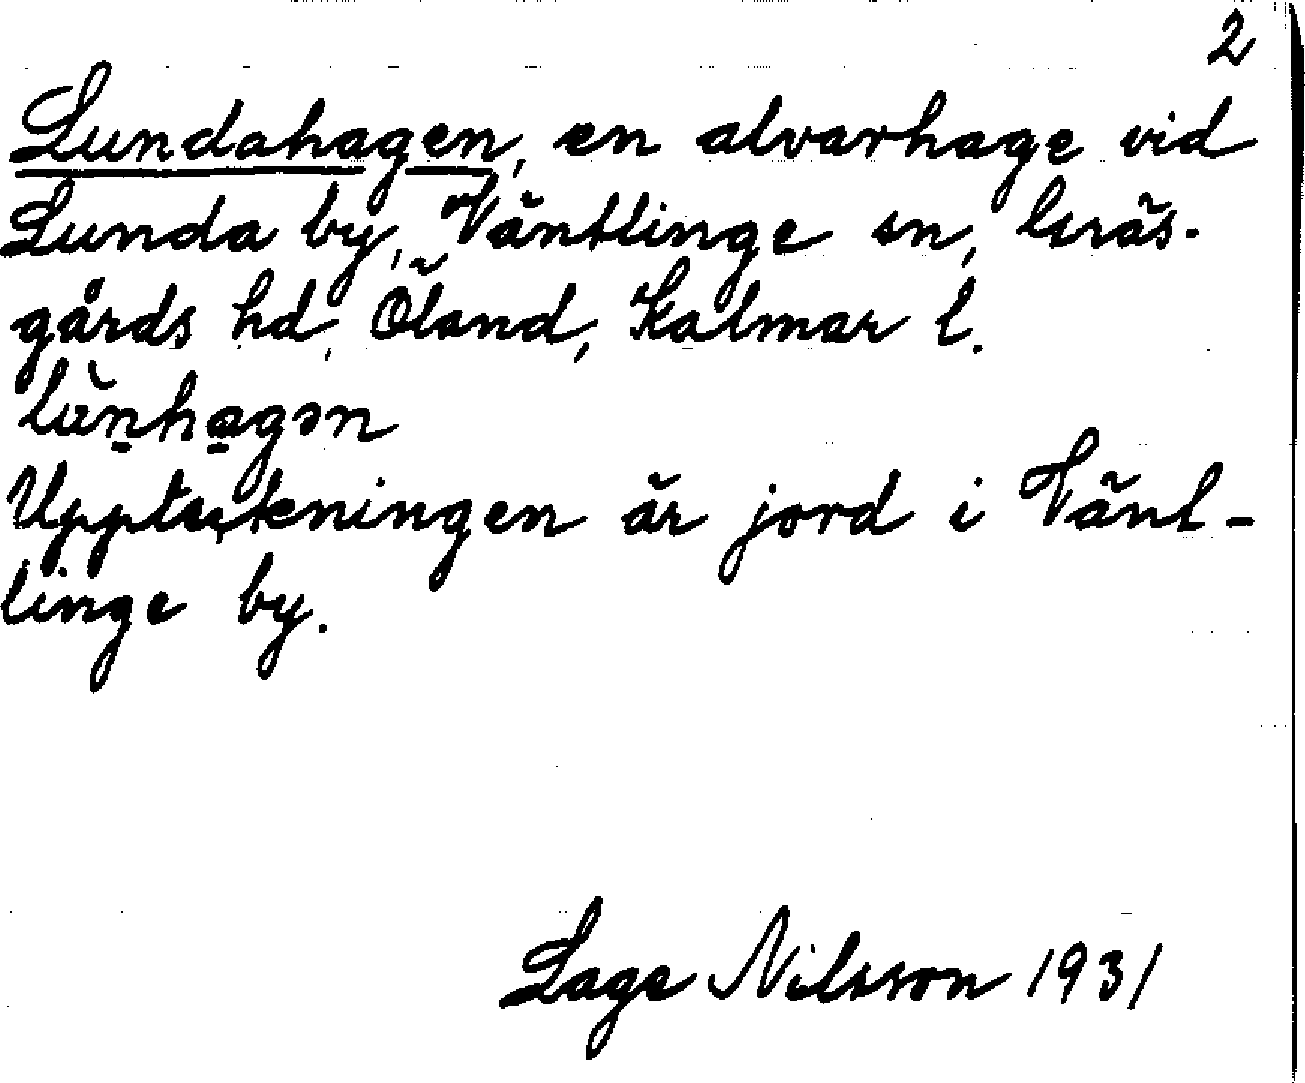 2
Lundahagen, en alvarhage vid
Lunda by, Väntlinge sn, Gräs-
gårds hd, Öland, Kalmar l.
Uppteckningen är jord i Vänt-
linge by.
Lage Nilsson 1931